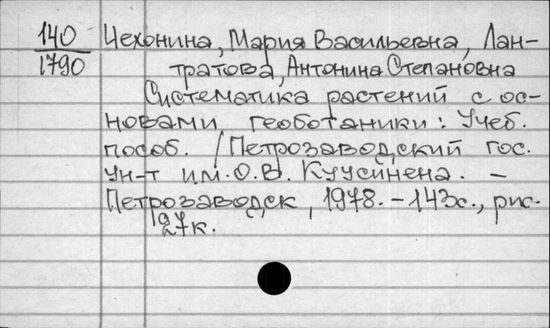 140 Чехонина, Мария Васильевна, Лан-
1790 тратова, Антонина Степановна
Систематика растений с ос-
новами геоботаники: Учеб.
пособ. / Петрозаводский гос.
ун-т им. О.В. Куусинена. –
Петрозаводск, 1978. – 143с., рис.
27к.